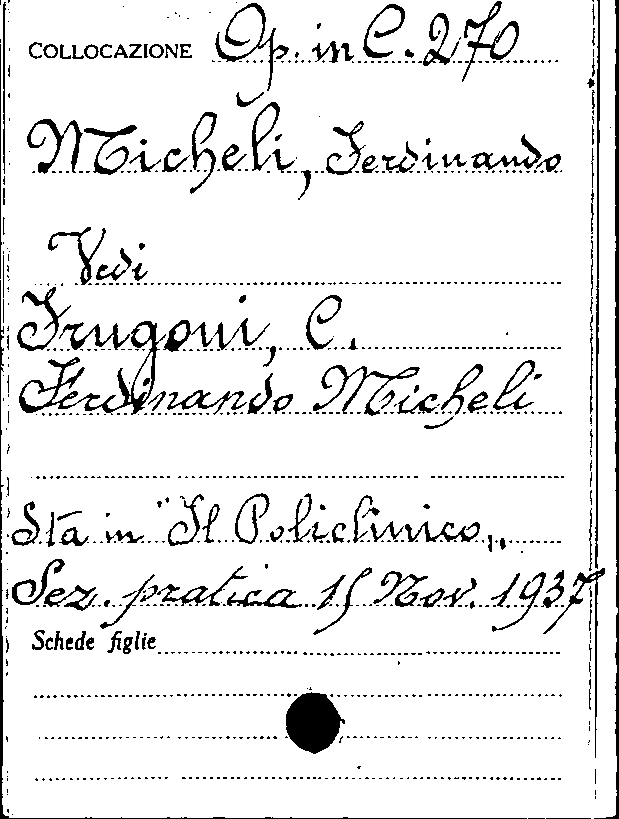 COLLOCAZIONE Op. in C. 270
Micheli, Ferdinando
Vedi
Frugoni, C.
Ferdinando Micheli
Sta in "Il Policlinico„
Sez. pratica 15 Nov. 1937
Schede figlie